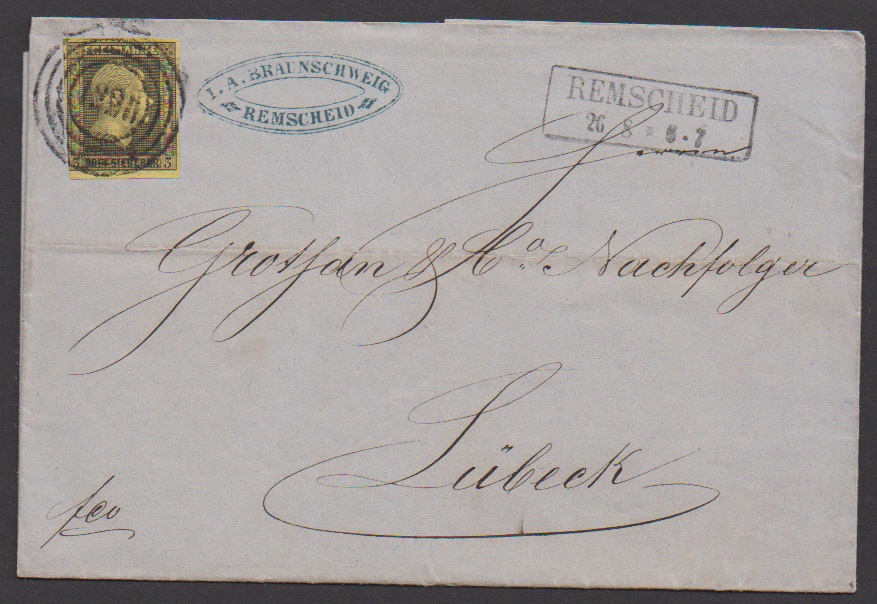 FREIMARKE
3 3
I. A. BRAUNSCHWEIG
REMSCHEID
REMSCHEID
26 8 * 6-7
Herren
Grothan & Co. Nachfolger
Lübeck
fco